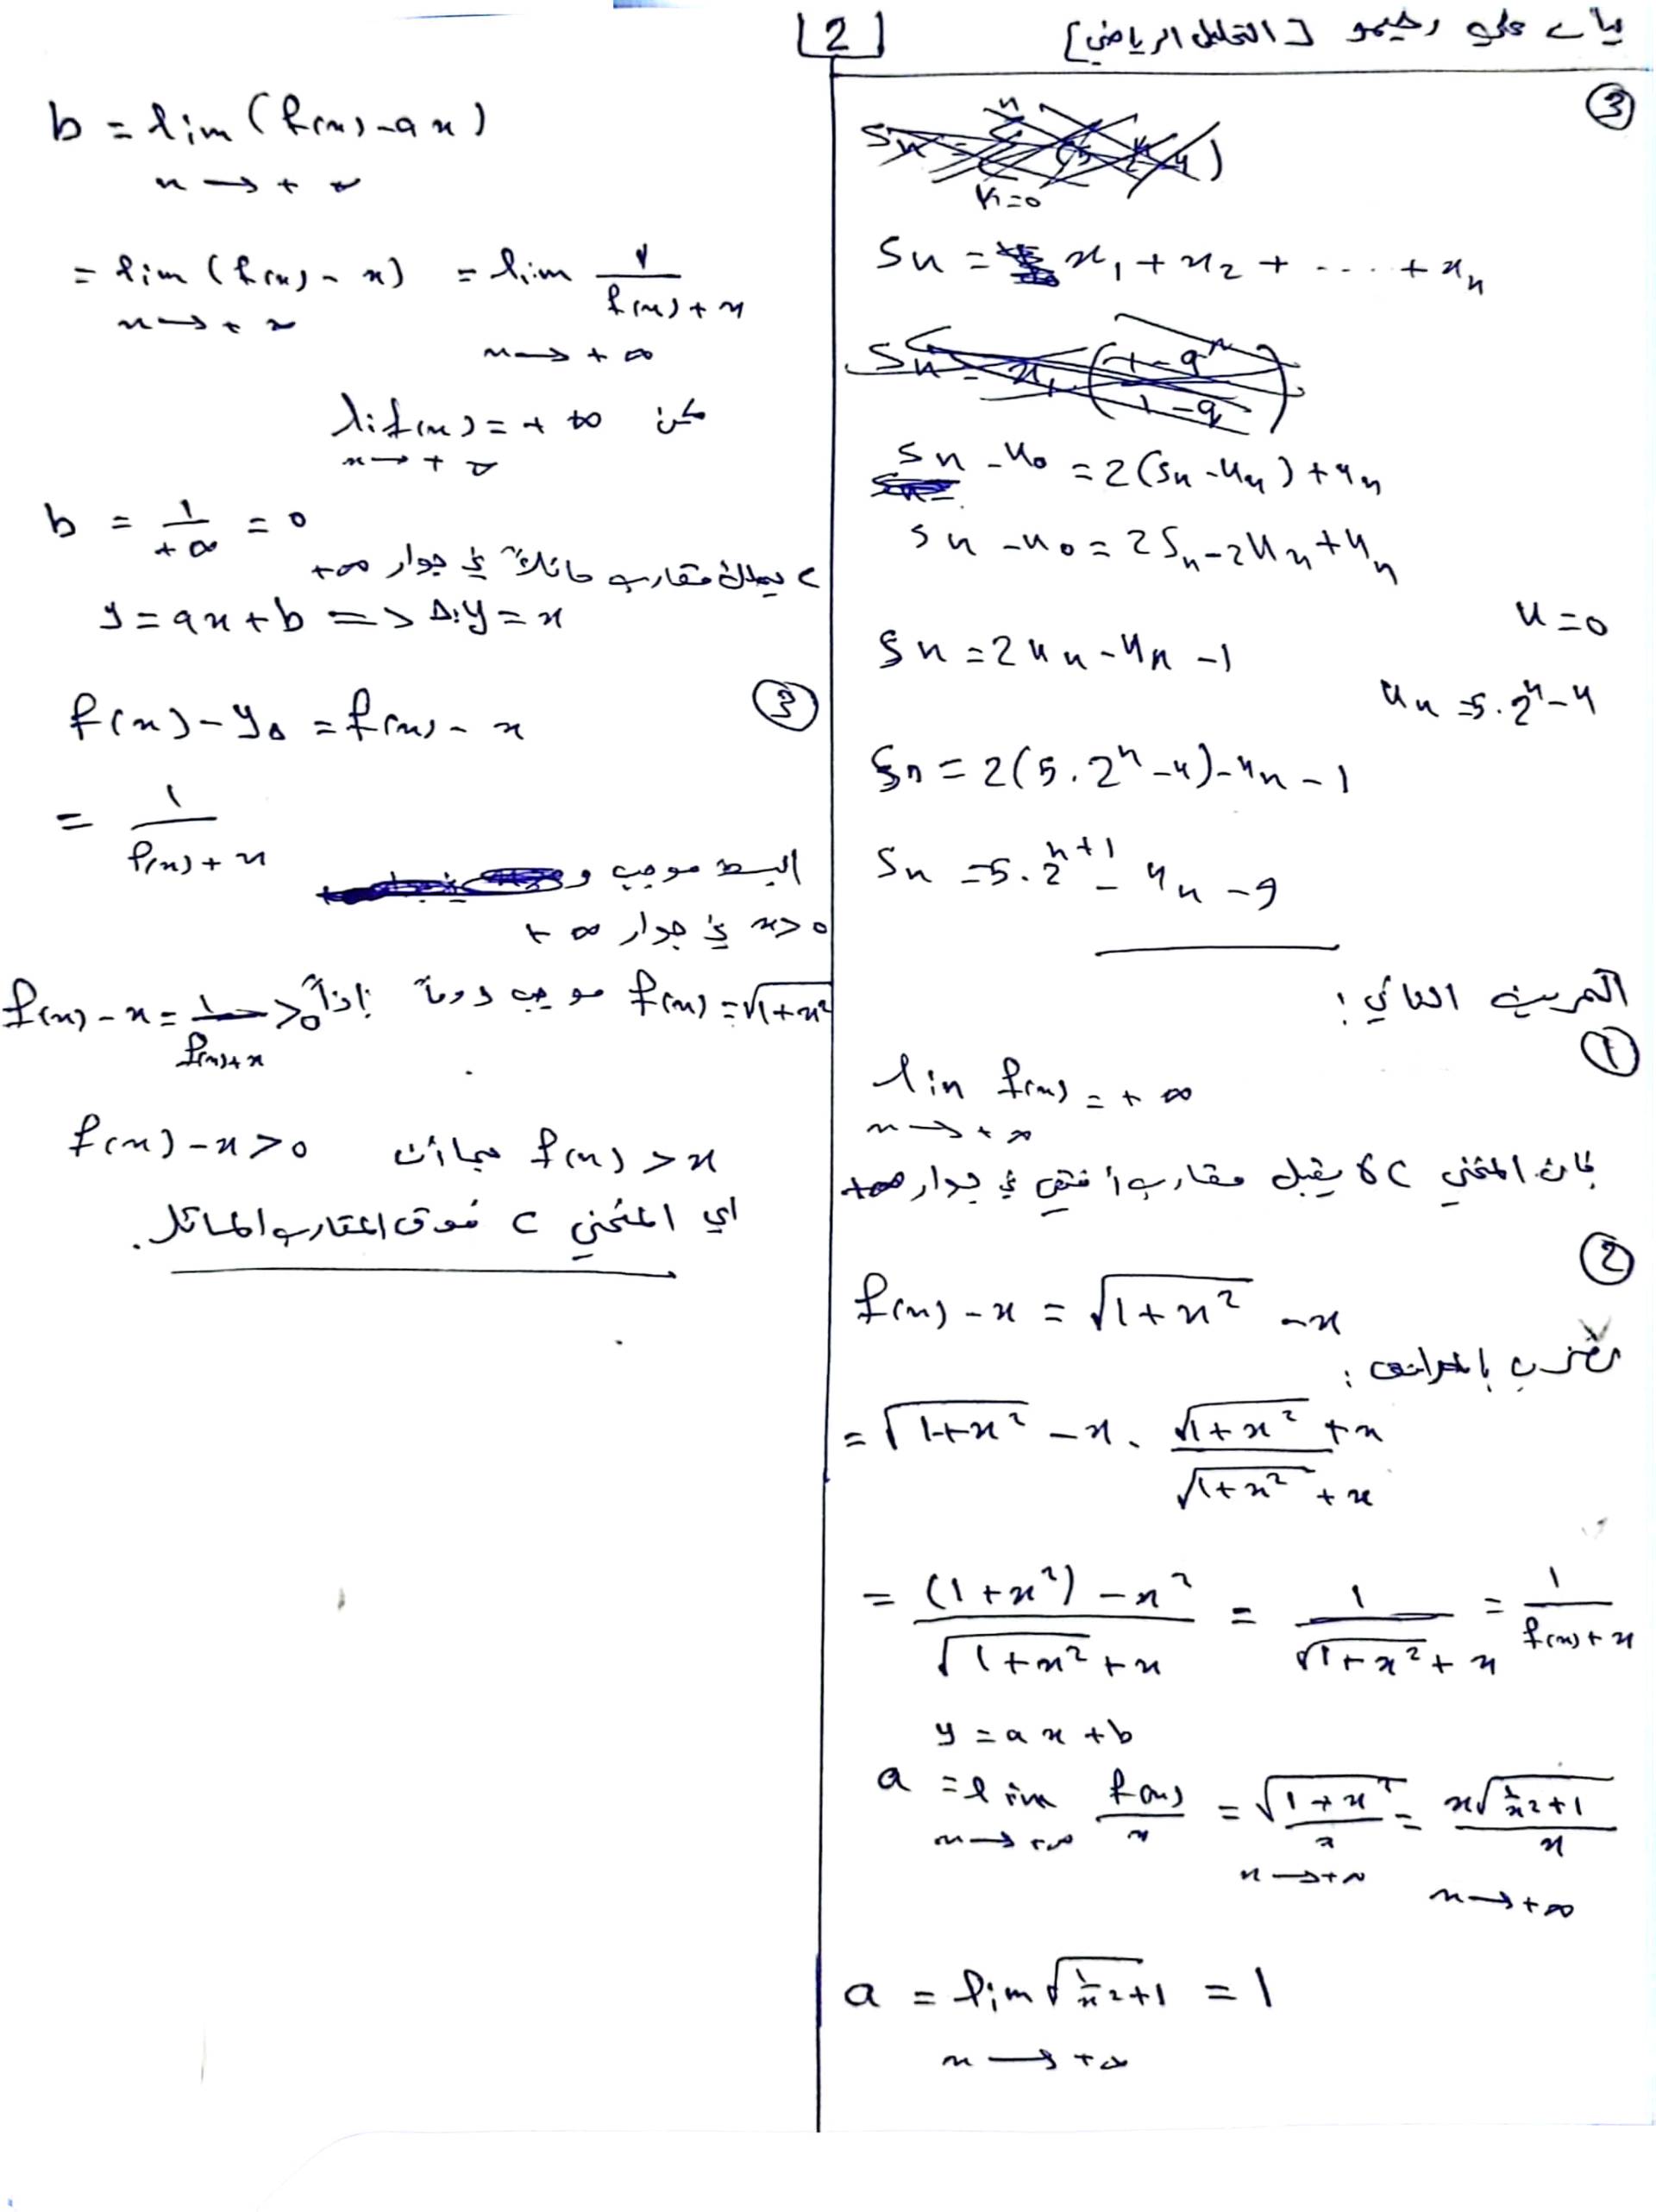 [2]
[التحليل الرياضي]
③
Sn = x₁ + x₂ + .... + xn
Sn - u₀ = 2(Sn - un) + 4n
Sn - u₀ = 2Sn - 2un + 4n
u = 0
Sn = 2un - 4n - 1
un = 5.2ⁿ - 4
Sn = 2(5.2ⁿ - 4) - 4n - 1
Sn = 5.2ⁿ⁺¹ - 4n - 9
التمرين الثاني:
①
lim f(x) = + ∞
x → + ∞
فإن المنحني C لا يقبل مقارب أفقي في جوار +∞
②
f(x) - x = √(1+x²) - x
نضرب بالمرافق:
= √(1+x²) - x . (√(1+x²) + x)/(√(1+x²) + x)
= ((1+x²) - x²)/(√(1+x²) + x) = 1/(√(1+x²) + x) = 1/(f(x) + x)
y = ax + b
a = lim f(x)/x = √(1+x²)/x = x√(1/x²+1)/x
x → +∞ x → +∞ x → +∞
a = lim √(1/x²+1) = 1
x → +∞
b = lim (f(x) - ax)
x → + ∞
= lim (f(x) - x) = lim 1/(f(x) + x)
x → + ∞ x → + ∞
لكن lif(x) = + ∞
x → + ∞
b = 1/+∞ = 0
C يملك مقارب مائلاً في جوار +∞
y = ax + b => Δ:y = x
③
f(x) - yΔ = f(x) - x
= 1/(f(x) + x)
البسط موجب و
x > 0 في جوار + ∞
f(x) = √(1+x²) موجب دوماً إذاً f(x) - x = 1/(f(x)+x) > 0
f(x) - x > 0 بما أن f(x) > x
اي المنحني C فوق المقارب المائل.